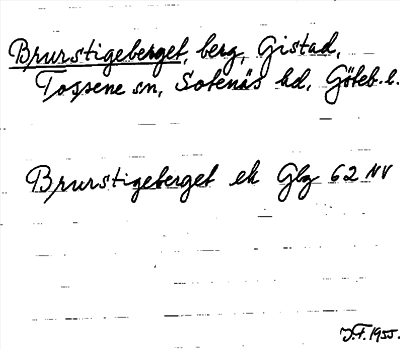 Brurstigeberget, berg, Gistad,
Tossene sn, Sotenäs hd, Göteb. l.
Brurstigeberget ek Glg 62 NV
J.F. 1955.